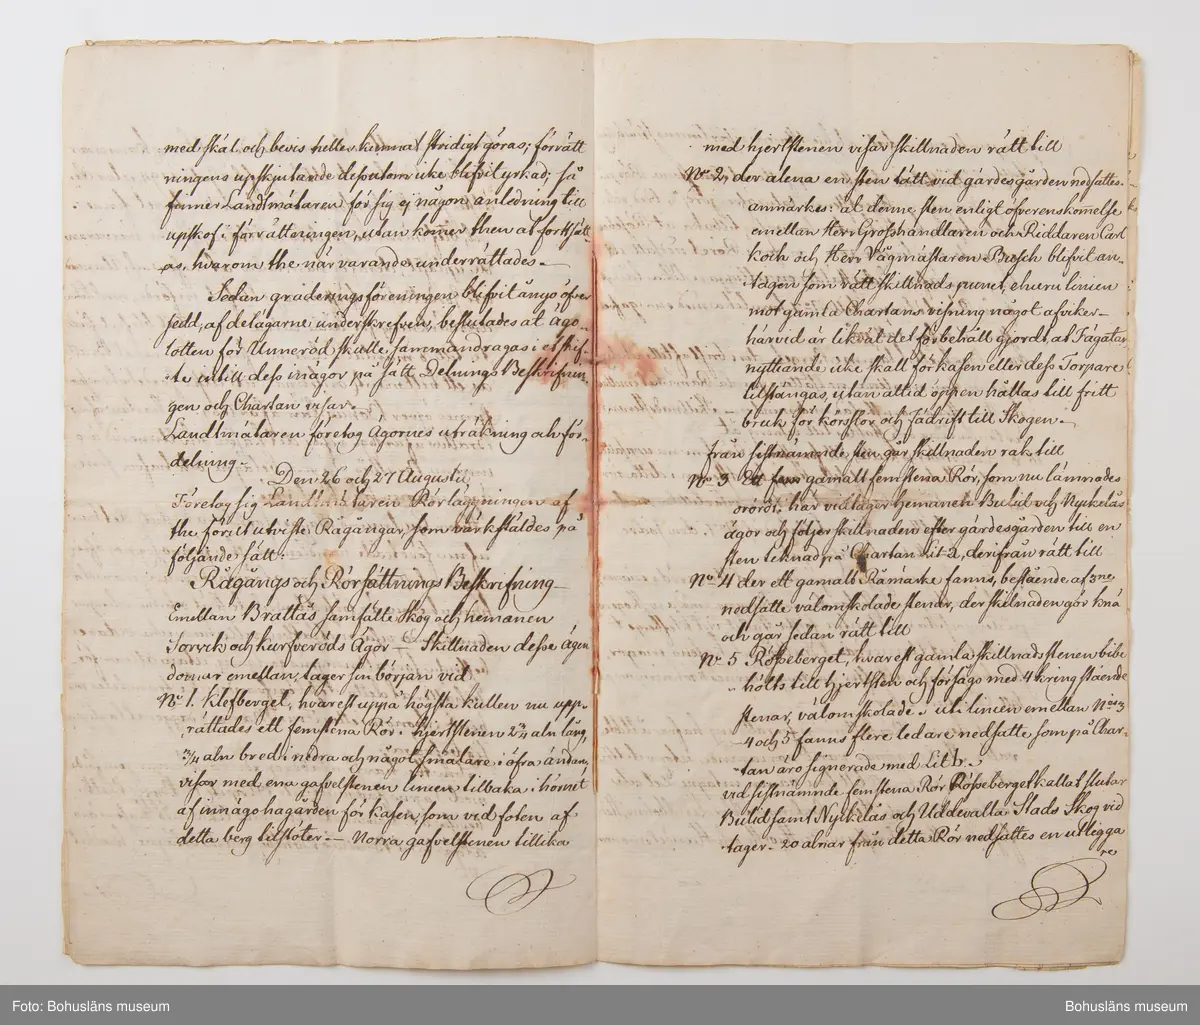 med skäl och bevis heller kunnat stridigt göras; förrätt
ningens upskjutande desutom icke blifvit yrkad; så
finner Landtmätaren för sig ej någon anledning till
upskof i förrättningen, utan kommer then at fortsätt
as, hvarom the närvarande underrättades.—
Sedan graderingsföreningen blifvit ånyo öfver
sedd, af delägarne underskrefven, beslutades at ägo-
lotten för Unneröd skulle sammandragas i et skif-
te intill dess inägor på sätt Delnings Beskrifnin-
gen och Chartan visar.
Landtmätaren företog Ägornes uträkning och för-
delning.—
Den 26 och 27 Augusti
Företog sig Landtmätaren Rörläggningen af
the förut utviste Rågångar, som värkstäldes på
följande sätt:
Rågångs och Rörsättnings Beskrifning
Emellan Brattås samfälte Skog och hemanen
Sorvik och Kurfveröds Ägor — Skillnaden desse ägen
domar emellan, tager sin början vid
No 1. Klefberget, hvarest uppå högsta kullen nu upp-
rättades ett femstena Rör. hjertstenen 2 1/4 aln lång,
3/4 aln bred i nedra och något smalare i öfra ändan,
visar med ena gafvelstenen linien tillbaka i hörnet
af innägohagården för Kasen, som vid foten af
detta berg tilstöter — Norra gafvelstenen tillika
med hjertstenen visar skillnaden rätt till
No 2, der alena en sten tätt vid gärdesgården nedsattes.
anmärkes: at denne sten enligt öfverenskommelse
emellan Herr Grosshandlaren och Riddaren Carl
Koch och Herr Vågmästaren Busch blifvit an-
tagen som rätt skillnads punct, ehuru linien
mot gamla Chartans visning något afviker—
härvid är likväl det förbehåll gjordt, at Fägatan
nyttiande icke skall för Kasen eller dess Torpare
tilstängas, utan altid öppen hållas till fritt
bruk för körslor och fädrift till Skogen.—
från sistnämnde sten går skillnaden rak till
No 3 Ett gamalt femstena Rör, som nu lämnades
orördt. här vidtager hemanet Bulid och Nyckelås
ägor och följer skillnaden efter gärdesgården till en
sten teknad på Chartan Lit. a, derifrån rätt till
No 4 der ett gamalt Råmärke fanns, bestående af 3ne
nedsatte välomskolade stenar, der skilnaden gör knä
och går sedan rätt till
No 5 Rösseberget, hvarest gamla skillnadsstenen bibe
hölts till hjertsten och försågs med 4 kring stående
stenar, välomskolade. uti linien emellan No 3
4 och 5 fanns flere ledare nedsatte som på Char-
tan äro signerade med Lit. b.
vid sistnämnde femstena Rör Rösseberget kallat slutar
Bulid samt Nyckelås och Uddevalla Stads Skog vid
tager. 20 alnar från detta Rör nedsattes en utligga
re
Foto: Bohusläns museum
Bohusläns museum